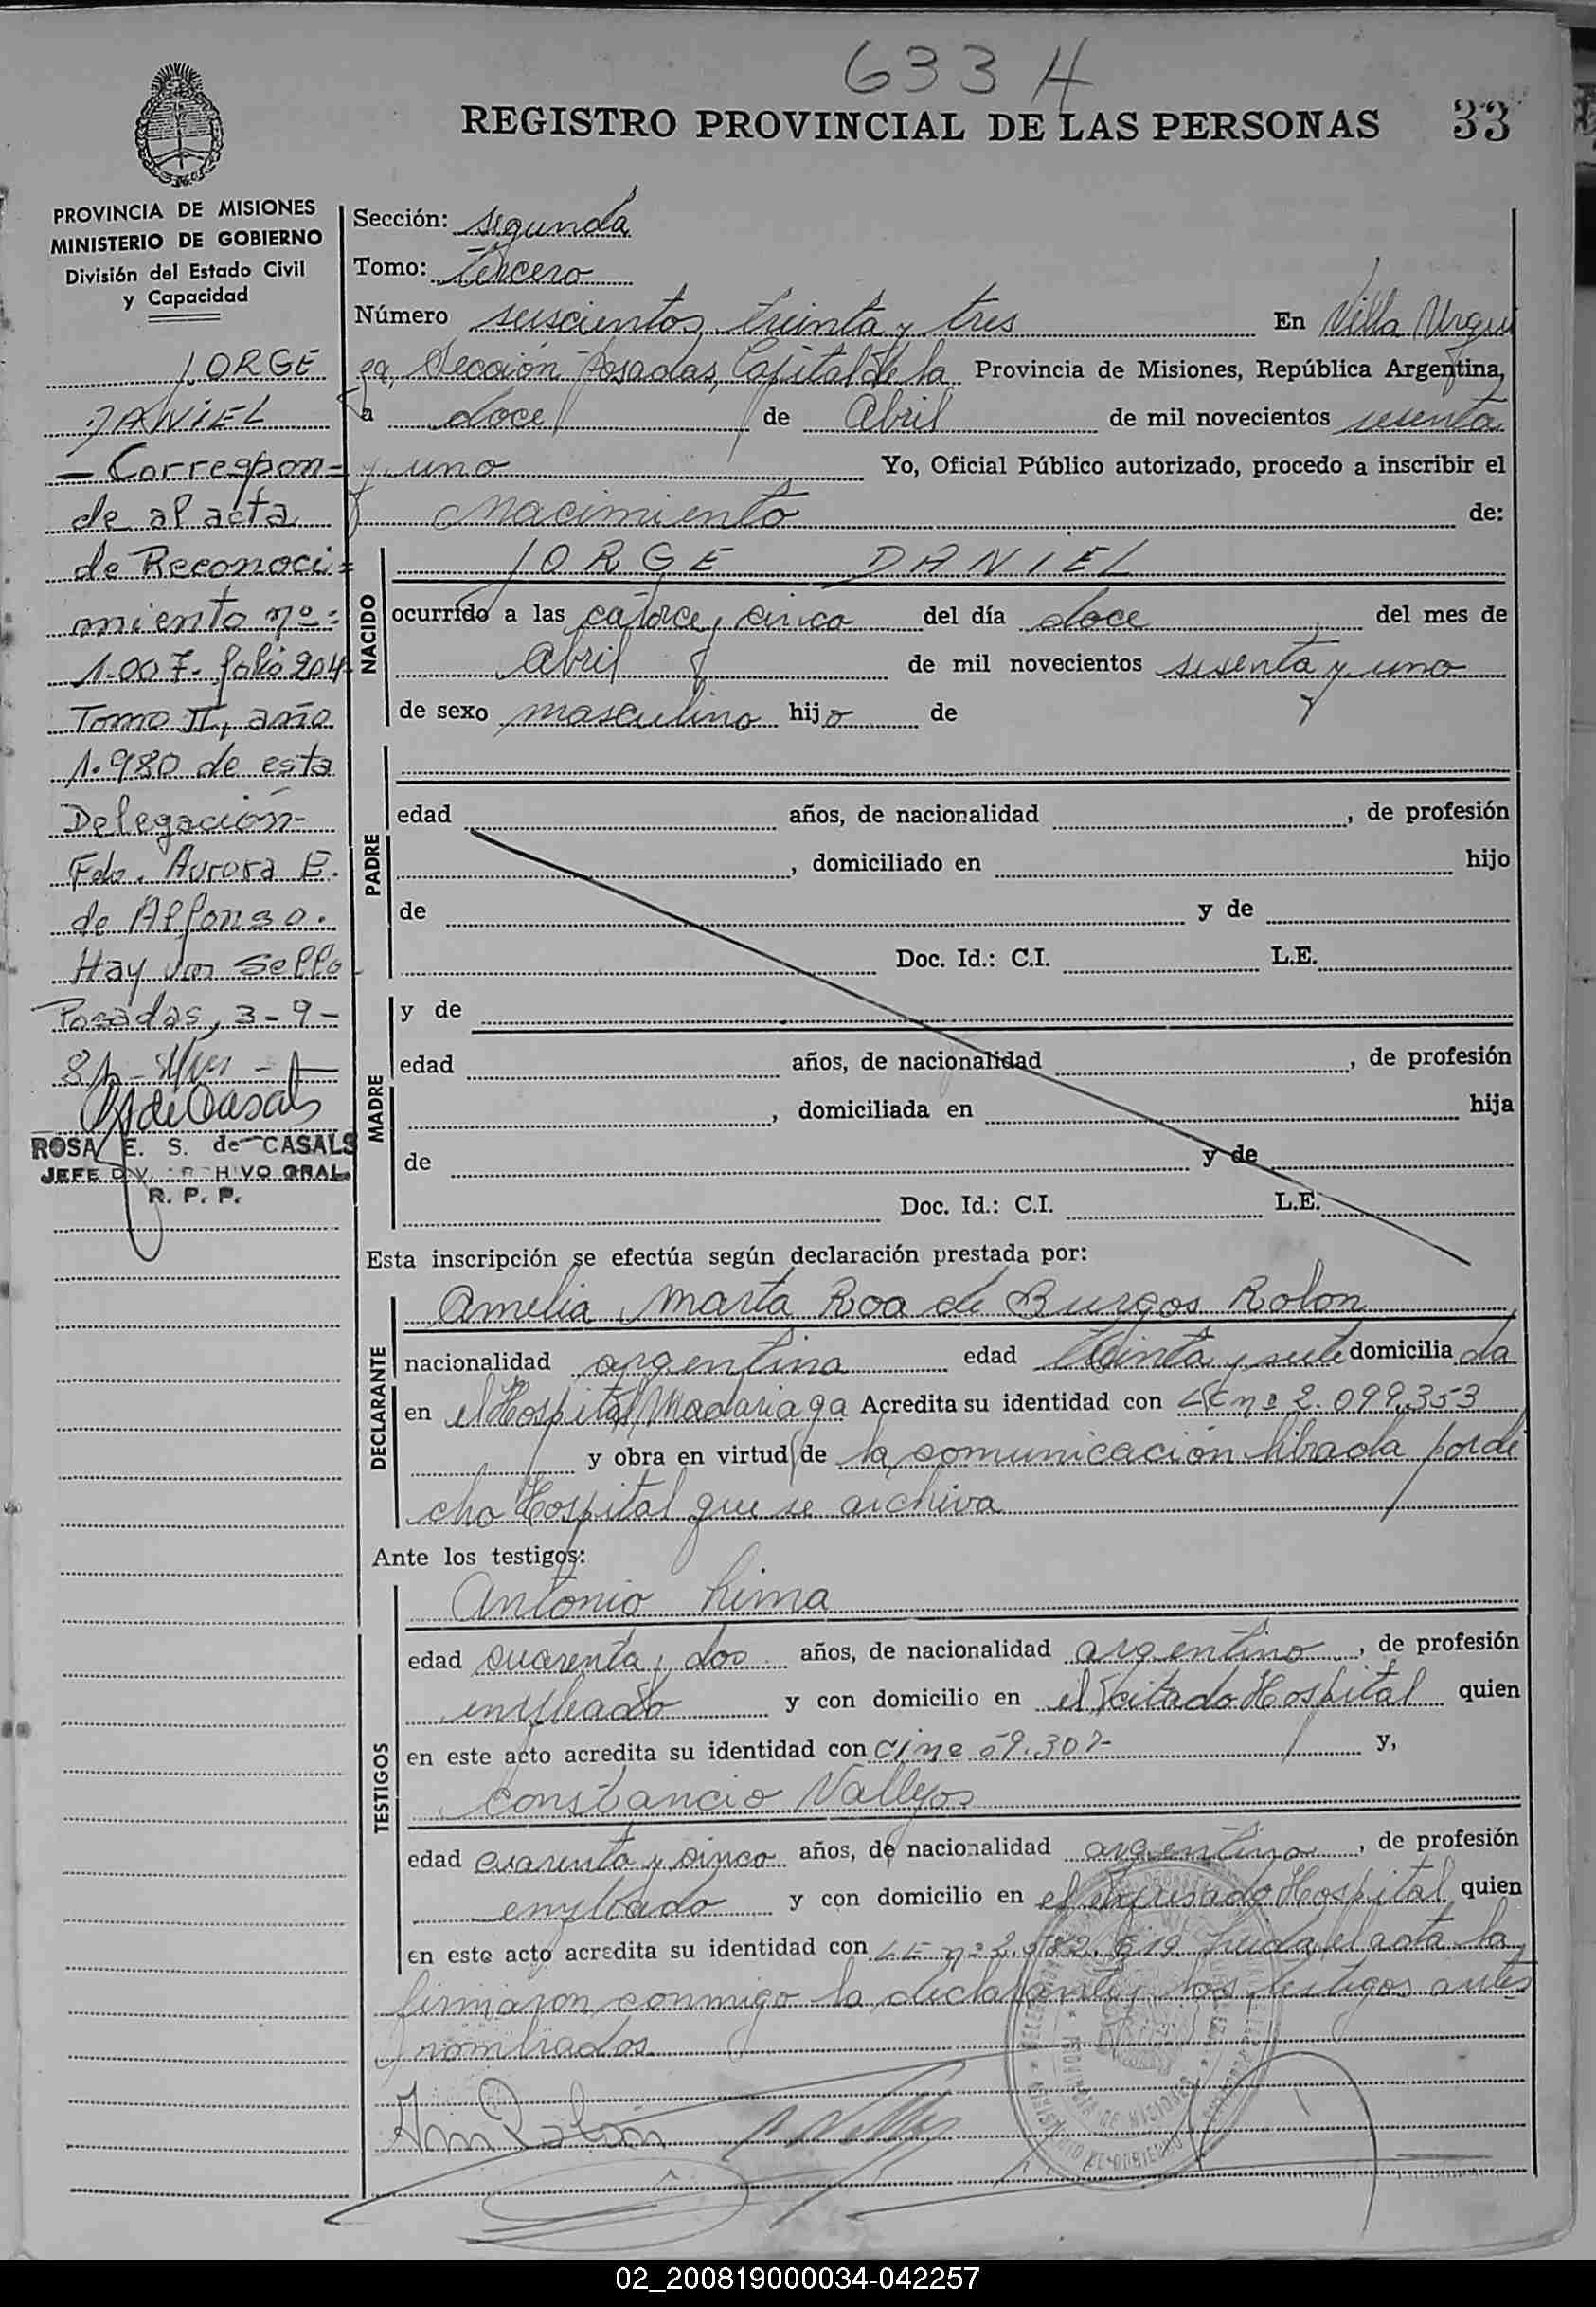 633 H
REGISTRO PROVINCIAL DE LAS PERSONAS 33
PROVINCIA DE MISIONES
MINISTERIO DE GOBIERNO
División del Estado Civil
y Capacidad
JORGE
DANIEL
— Correspon=
de al acta
de Reconoci=
miento nº=
1.007- folio 204-
Tomo II, año
1.980 de esta
Delegación-
Fdo. Aurora E.
de Alfonso.
Hay un Sello
Posadas, 3-9-
81-
ROSA E. S. de CASALS
JEFE DIV. ARCHIVO GRAL.
R. P. P.
Sección: segunda
Tomo: tercero
Número seiscientos treinta y tres En Villa Urqui
za, Sección Posadas, Capital de la Provincia de Misiones, República Argentina,
a doce de Abril de mil novecientos sesenta
y uno Yo, Oficial Público autorizado, procedo a inscribir el
Nacimiento de:
NACIDO
JORGE DANIEL
ocurrido a las catorce y cinco del día doce del mes de
Abril de mil novecientos sesenta y uno
de sexo masculino hijo de
PADRE
edad años, de nacionalidad , de profesión
, domiciliado en hijo
de y de
Doc. Id.: C.I. L.E.
y de
MADRE
edad años, de nacionalidad , de profesión
, domiciliada en hija
de y de
Doc. Id.: C.I. L.E.
Esta inscripción se efectúa según declaración prestada por:
DECLARANTE
Amelia Marta Roa de Burgos Rolon
nacionalidad argentina edad treinta y siete domiciliada
en el Hospital Madariaga Acredita su identidad con LC nº 2.099.353
y obra en virtud de la comunicación librada por di
cho Hospital que se archiva
Ante los testigos:
TESTIGOS
Antonio Lima
edad cuarenta y dos años, de nacionalidad argentino, de profesión
empleado y con domicilio en el citado Hospital quien
en este acto acredita su identidad con CI nº y,
Constancio Vallejos
edad cuarenta y cinco años, de nacionalidad argentino, de profesión
empleado y con domicilio en el expresado Hospital quien
en este acto acredita su identidad con LE nº Leída el acta la
firmaron conmigo la declarante y los testigos antes
nombrados.
02_200819000034-042257